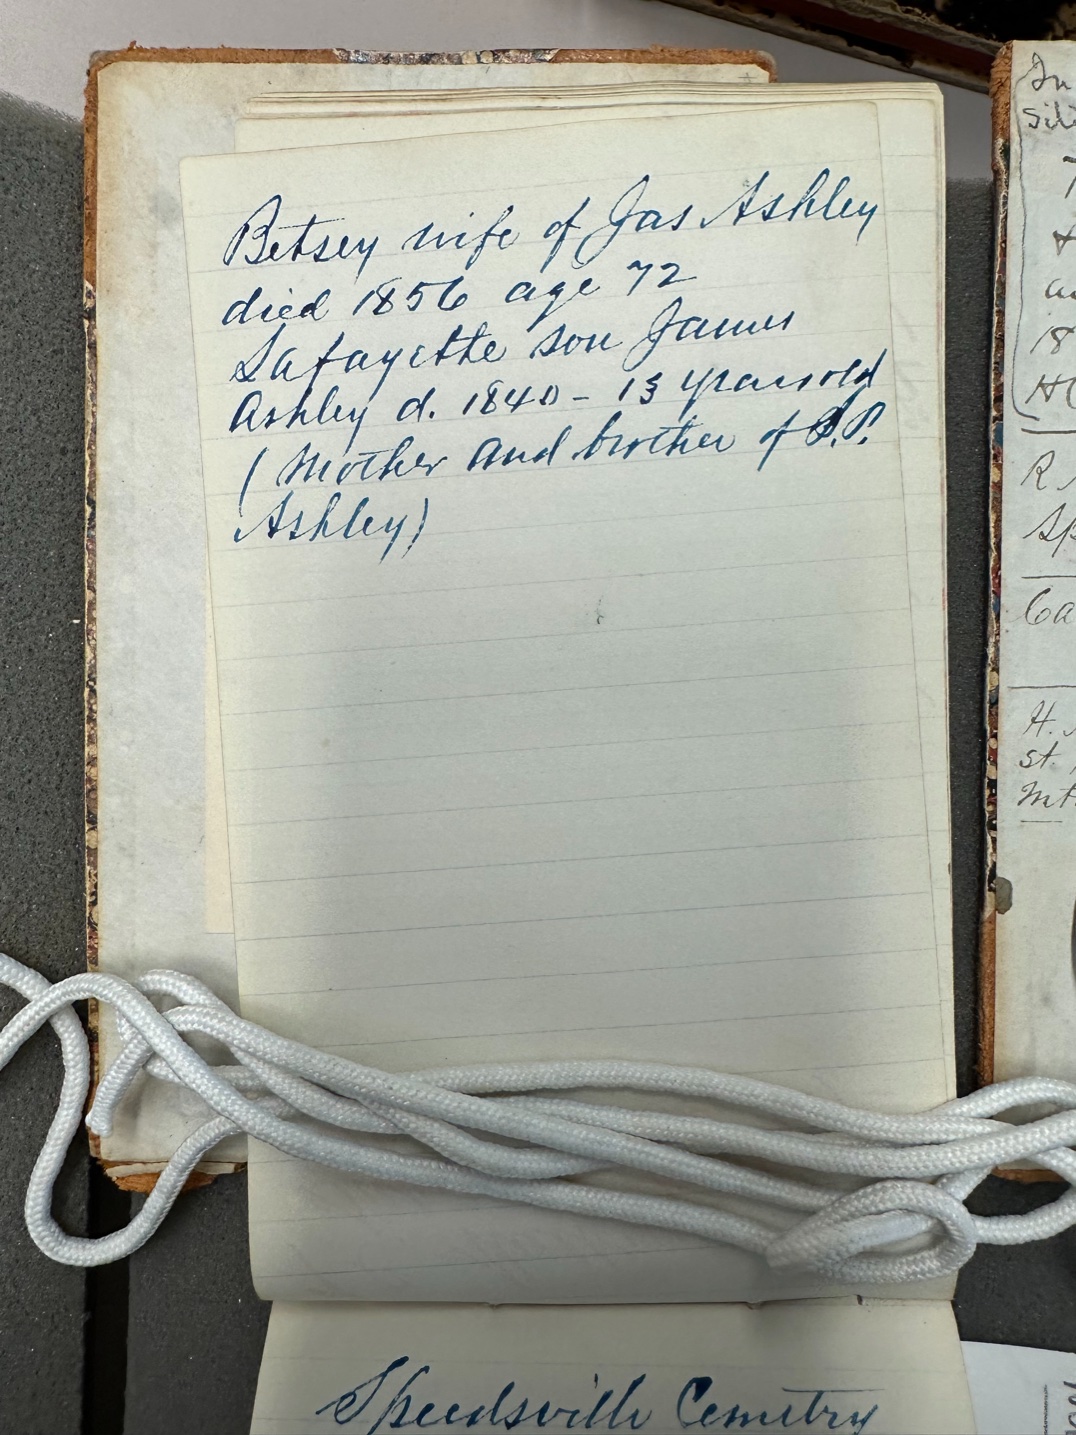 Betsey wife of Jas Ashley
died 1856 age 72
Lafayette son James
Ashley d. 1840 - 13 years old
(Mother and brother of P.
Ashley)
Speedsville Cemetry
In
18
R
Sp
Ca
H.
st.
Mt.